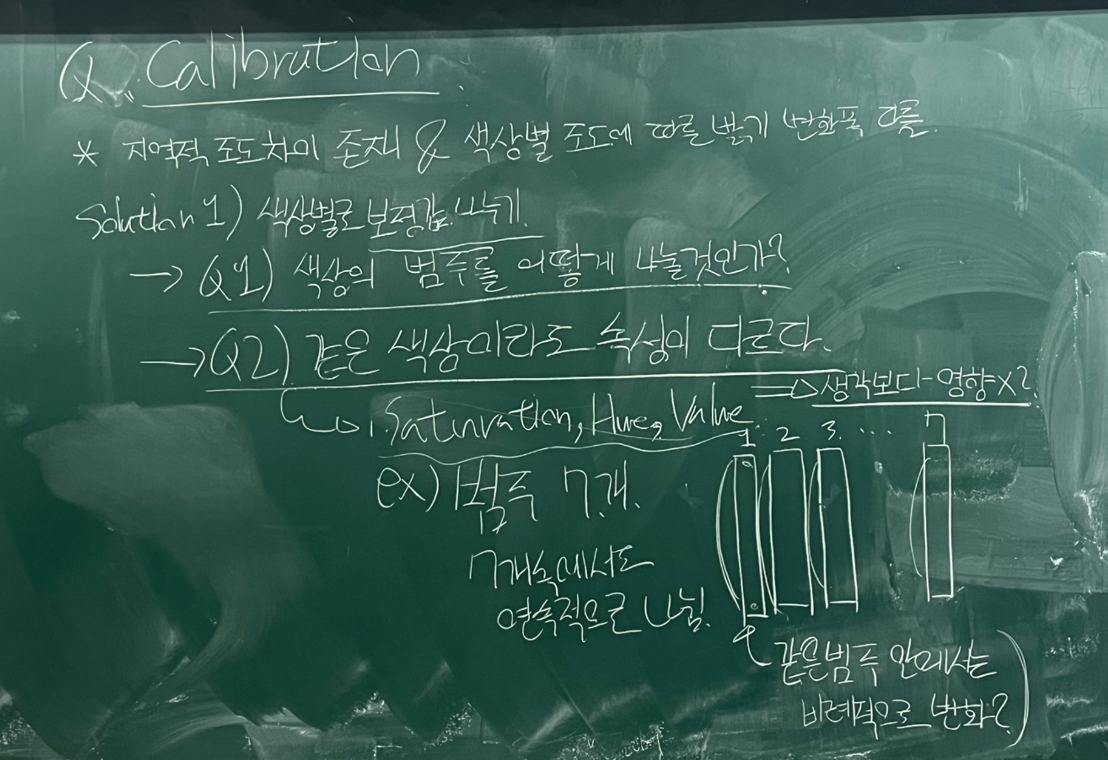 Q. Calibration
* 지역적 조도차이 존재 & 색상별 조도에 따른 밝기 변화폭 다름.
Solution 1) 색상별로 보정값 나누기.
→ Q1) 색상의 범주를 어떻게 나눌것인가?
→ Q2) 같은 색상이라도 속성이 다르다.
Saturation, Hue, Value
⇒ 생각보다 영향 X?
1 2 3 ... 7
ex) 범주 7개.
7개속에서도
연속적으로 나뉨.
같은범주 안에서는
비례적으로 변화?